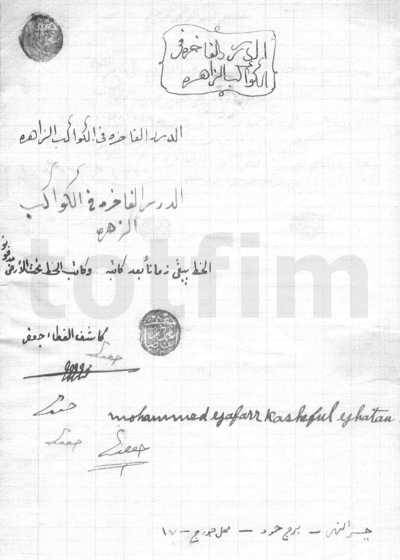 الدرر الفاخره في
الكواكب الزاهره
الدرر الفاخره في الكواكب الزاهره
الدرر الفاخره في الكواكب
الزهره
الخط يبقى زماناً بعد كاتبه وكاتب الخط تحت الأرض مدفون
totfim
كاشف الغطاء جعفر
جعفر
جعفر
mohammed yafarr kasheful yhatau
جعفر
جعفر
جسر النهر – برج حمود – محل جورج – ١٧